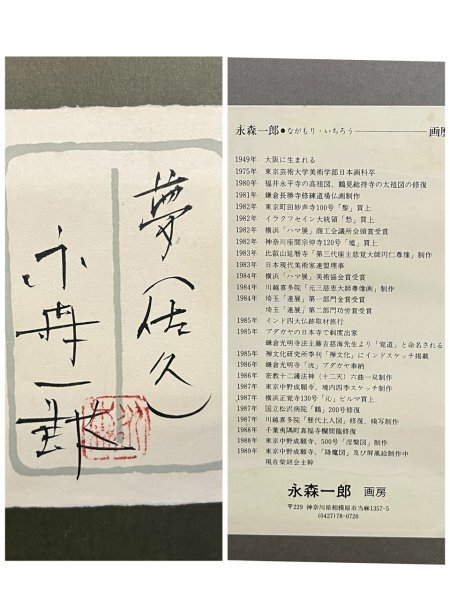 夢(佐久)
永森一郎
永森一郎●ながもり・いちろう 画歴
1949年 大阪に生まれる
1975年 東京芸術大学美術学部日本画科卒
1980年 福井永平寺の高祖図、鶴見総持寺の太祖図の修復
1981年 鎌倉長勝寺修練道場仏画制作
1982年 東京町田妙声寺100号「黎」買上
1982年 イラクフセイン大統領「愁」買上
1982年 横浜「ハマ展」商工会議所会頭賞受賞
1982年 神奈川座間宗仲寺120号「墟」買上
1983年 比叡山延暦寺「第三代座主慈覚大師円仁尊像」制作
1983年 日本現代美術家連盟理事
1984年 横浜「ハマ展」美術協会賞受賞
1984年 川越喜多院「元三慈恵大師尊像画」制作
1984年 埼玉「連展」第一部門会賞受賞
埼玉「連展」第二部門功労賞受賞
1985年 インド四大仏跡取材旅行
1985年 ブダガヤの日本寺で剃度出家
鎌倉光明寺法主藤吉慈海先生より「寛道」と命名される
1985年 禅文化研究所季刊「禅文化」にインドスケッチ掲載
1986年 鎌倉光明寺「沈」ブダガヤ奉納
1986年 密教十二護法神(十二天)六曲一双制作
1987年 東京中野成願寺、境内四季スケッチ制作
1987年 横浜正覚寺130号「沁」ビルマ買上
1987年 国立松沢病院「鶴」200号修復
1987年 川越喜多院「歴代上人図」修復、模写制作
1988年 千葉夷隅町真福寺欄間龍修復
1988年 東京中野成願寺、500号「涅槃図」制作
1989年 東京中野成願寺、「降魔図」及び屏風絵制作中
現在栄研会主幹
永森一郎 画房
〒229 神奈川県相模原市当麻1357-5
(0427)78-0720